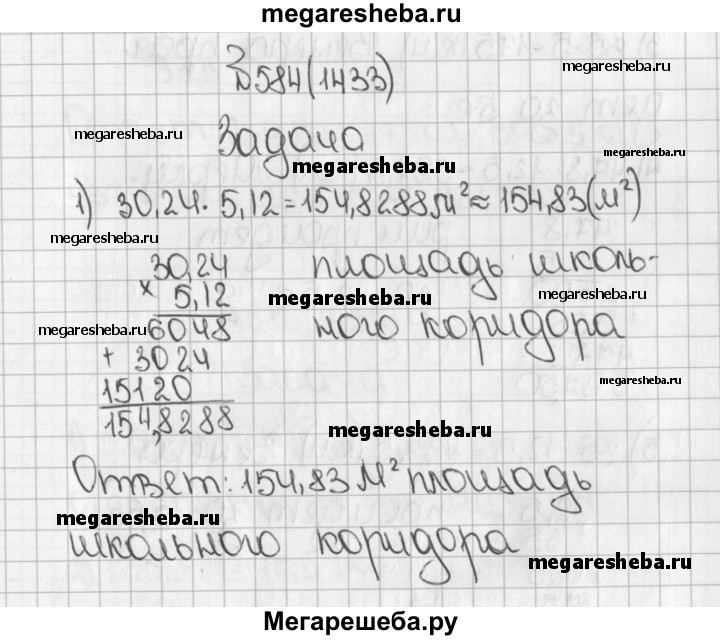 megaresheba.ru
№584(1433)
megaresheba.ru
megaresheba.ru
Задача
megaresheba.ru
megaresheba.ru
1) 30,24 · 5,12 = 154,8288 м² ≈ 154,83 (м²)
megaresheba.ru
megaresheba.ru
30,24 площадь школь-
× 5,12
megaresheba.ru
megaresheba.ru
6048 ного коридора
megaresheba.ru
+ 3024
15120
megaresheba.ru
154,8288
megaresheba.ru
Ответ: 154,83 м² площадь
megaresheba.ru
школьного коридора
megaresheba.ru
Мегарешеба.ру